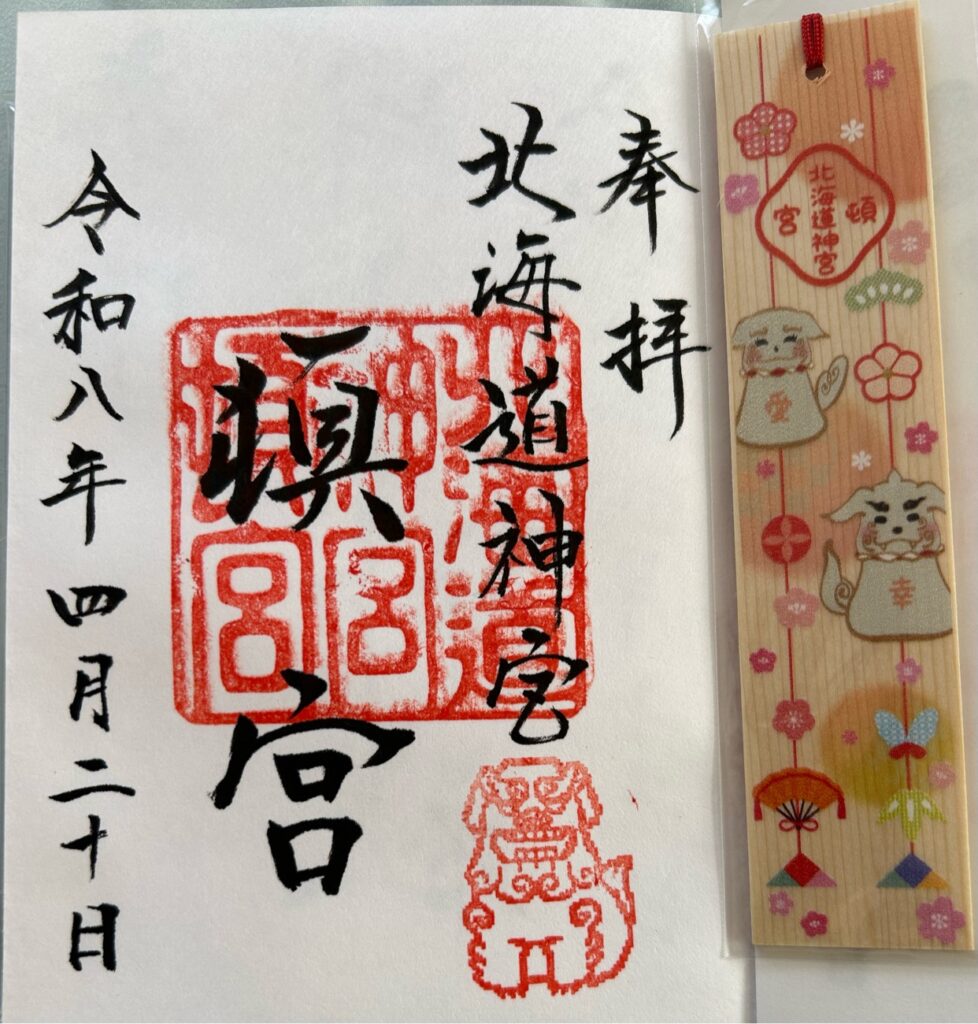 奉拝
北海道神宮
頓宮
令和八年四月二十日
北海道神宮
頓宮
北海道神宮
頓宮
愛
幸